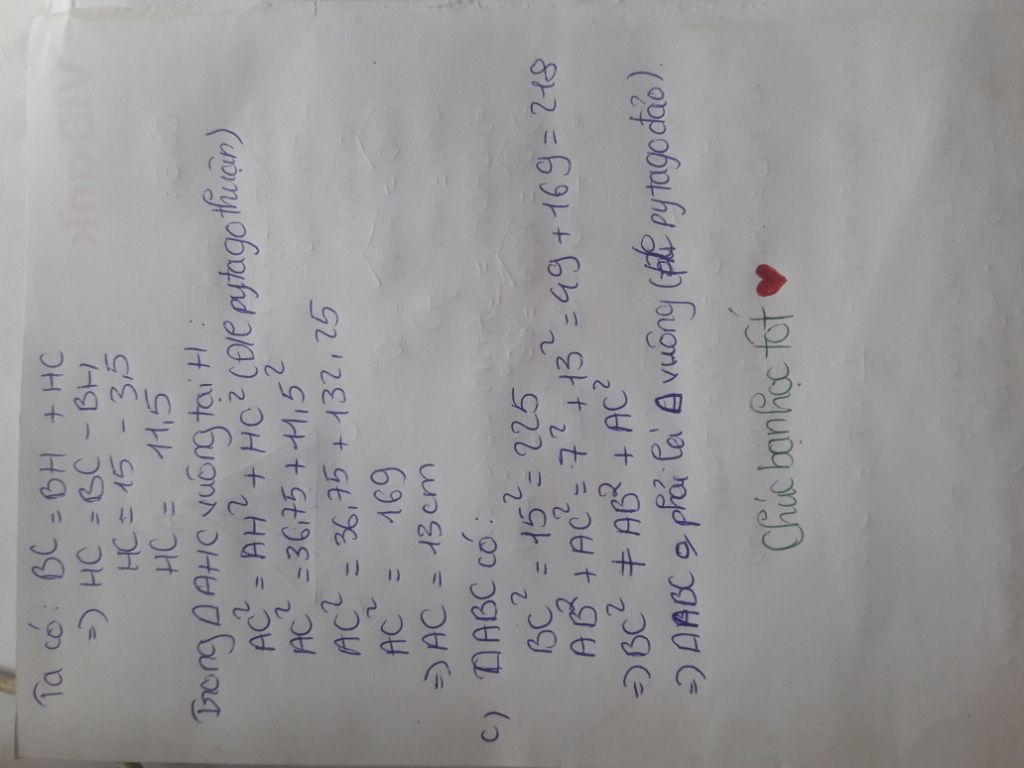 Ta có: BC = BH + HC
=) HC = BC - BH
HC = 15 - 3,5
HC = 11,5
Trong ΔAHC vuông tại H:
AC² = AH² + HC² (ĐL pytago thuận)
AC² = 36,75 + 11,5²
AC² = 36,75 + 132,25
AC² = 169
=) AC = 13 cm
c) ΔABC có:
BC² = 15² = 225
AB² + AC² = 7² + 13² = 49 + 169 = 218
=) BC² ≠ AB² + AC²
=) ΔABC phải là Δ vuông (pytago đảo).
Chúc bạn học tốt ♥